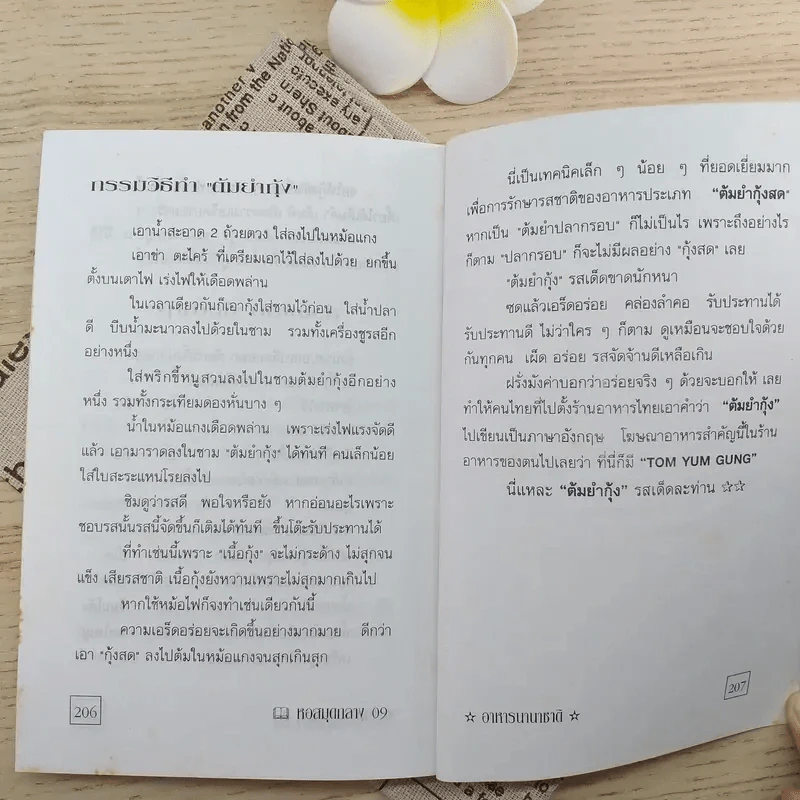 another v
n from the Nation
กรรมวิธีทำ "ต้มยำกุ้ง"
เอาน้ำสะอาด 2 ถ้วยตวง ใส่ลงไปในหม้อแกง
เอาข่า ตะไคร้ ที่เตรียมเอาไว้ใส่ลงไปด้วย ยกขึ้น
ตั้งบนเตาไฟ เร่งไฟให้เดือดพล่าน
ในเวลาเดียวกันก็เอากุ้งใส่ชามไว้ก่อน ใส่น้ำปลา
ดี บีบน้ำมะนาวลงไปด้วยในชาม รวมทั้งเครื่องชูรสอีก
อย่างหนึ่ง
ใส่พริกขี้หนูสวนลงไปในชามต้มยำกุ้งอีกอย่าง
หนึ่ง รวมทั้งกระเทียมดองหั่นบาง ๆ
น้ำในหม้อแกงเดือดพล่าน เพราะเร่งไฟแรงจัดดี
แล้ว เอามาราดลงในชาม "ต้มยำกุ้ง" ได้ทันที คนเล็กน้อย
ใส่ใบสะระแหน่โรยลงไป
ชิมดูว่ารสดี พอใจหรือยัง หากอ่อนอะไรเพราะ
ชอบรสนั้นรสนี้จัดขึ้นก็เติมได้ทันที ขึ้นโต๊ะรับประทานได้
ที่ทำเช่นนี้เพราะ "เนื้อกุ้ง" จะไม่กระด้าง ไม่สุกจน
แข็ง เสียรสชาติ เนื้อกุ้งยังหวานเพราะไม่สุกมากเกินไป
หากใช้หม้อไฟก็จงทำเช่นเดียวกันนี้
ความเอร็ดอร่อยจะเกิดขึ้นอย่างมากมาย ดีกว่า
เอา "กุ้งสด" ลงไปต้มในหม้อแกงจนสุกเกินสุก
206 หอสมุดกลาง 09
นี่เป็นเทคนิคเล็ก ๆ น้อย ๆ ที่ยอดเยี่ยมมาก
เพื่อการรักษารสชาติของอาหารประเภท "ต้มยำกุ้งสด"
หากเป็น "ต้มยำปลากรอบ" ก็ไม่เป็นไร เพราะถึงอย่างไร
ก็ตาม "ปลากรอบ" ก็จะไม่มีผลอย่าง "กุ้งสด" เลย
"ต้มยำกุ้ง" รสเด็ดขาดนักหนา
ซดแล้วเอร็ดอร่อย คล่องลำคอ รับประทานได้
รับประทานดี ไม่ว่าใคร ๆ ก็ตาม ดูเหมือนจะชอบใจด้วย
กันทุกคน เผ็ด อร่อย รสจัดจ้านดีเหลือเกิน
ฝรั่งมังค่าบอกว่าอร่อยจริง ๆ ด้วยจะบอกให้ เลย
ทำให้คนไทยที่ไปตั้งร้านอาหารไทยเอาคำว่า "ต้มยำกุ้ง"
ไปเขียนเป็นภาษาอังกฤษ โฆษณาอาหารสำคัญนี้ในร้าน
อาหารของตนไปเลยว่า ที่นี่ก็มี "TOM YUM GUNG"
นี่แหละ "ต้มยำกุ้ง" รสเด็ดละท่าน ☆☆
☆ อาหารนานาชาติ ☆ 207